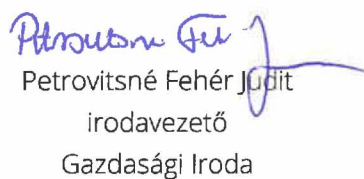 Petrovitsné Fehér Judit
irodavezető
Gazdasági Iroda